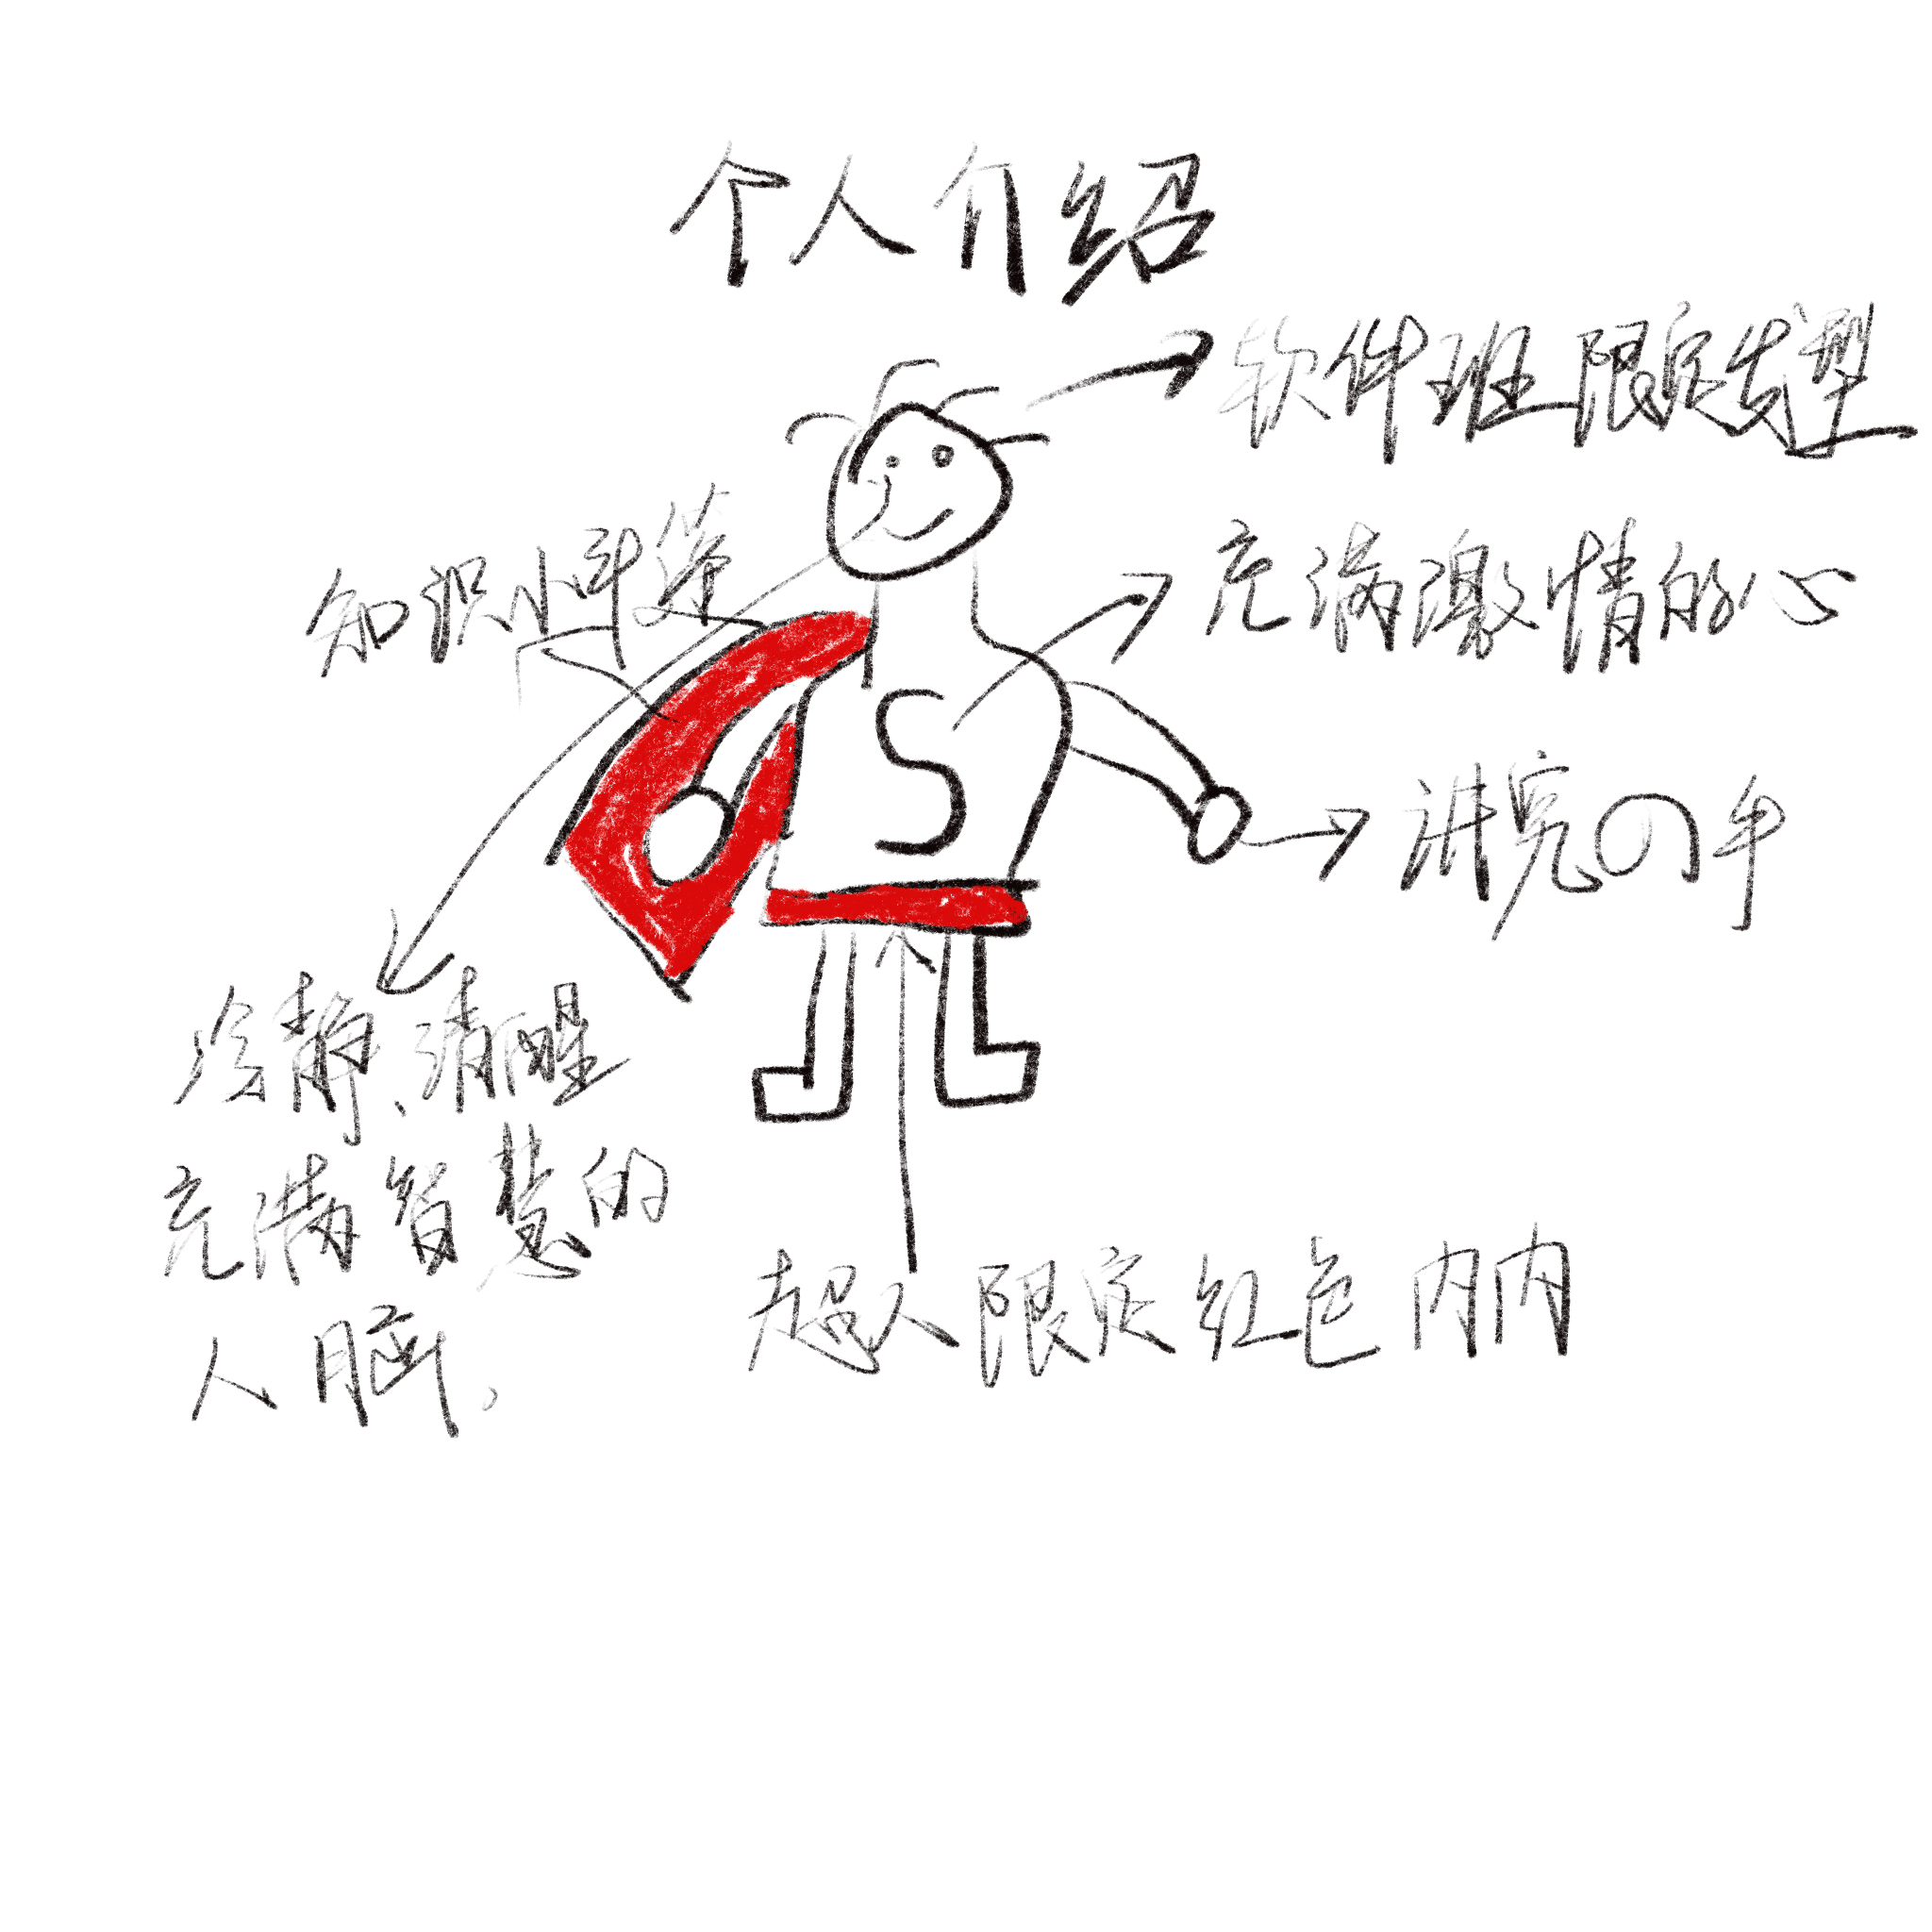 个人介绍
软件班限定发型
知识小斗篷
充满激情的心
S
讲完の手
冷静、清醒
充满智慧的
人脑.
超人限定红色内内